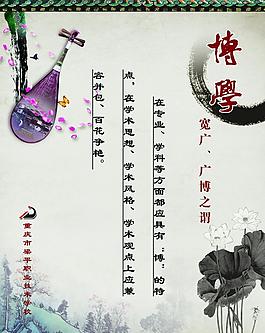 博學
宽广、广博之谓
在专业、学科等方面都应具有“博”的特
点，在学术思想、学术风格、学术观点上应兼
容并包、百花争艳。
重庆市梁平职业技术学校